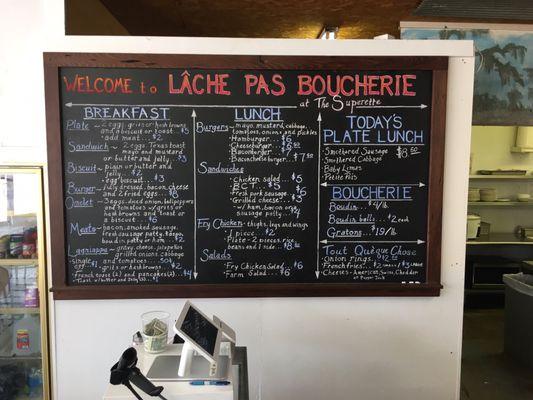 WELCOME to LÂCHE PAS BOUCHERIE
at The Superette
BREAKFAST
Plate ~ 2 eggs, grits or hash browns
and a biscuit or toast ~ $5
add meat .. $2
Sandwich ~ 2 eggs, Texas toast
mayo and mustard
or butter and jelly ...$3
Biscuit ~ plain or butter and
jelly.. $2
w/egg or biscuit .. $3
Burger ~ fully dressed, bacon, cheese
and 2 fried eggs .. $8
Omelet ~ 3 eggs, diced onion, bell peppers
and tomatoes w/ grits or
hash browns and toast or
a biscuit .. $6
Meats ~ bacon, smoked sausage,
fresh pork sausage patty,
boudin patty or ham .. $2
Lagniappe ~
grilled onions, cabbage
and tomatoes .. 50¢
~ single egg $1
~ grits or hash browns .. $2
~ French toast (2) and pancakes (2) .. $4
~ Toast w/ butter and jelly
LUNCH
Burgers ~ mayo, mustard, cabbage,
tomatoes, onions and pickles
~ Hamburger .. $6
~ Cheeseburger
~ Baconburger
~ Baconcheese burger .. $7.50
Sandwiches
~ Chicken salad .. $5
~ BLT .. $5
~ Fresh pork sausage
~ w/ ham, bacon or
sausage patty
Fry Chicken ~ thighs, legs and wings
~ 1 piece .. $2
~ Plate - 2 pieces, rice
beans or slaw .. $8
Salads
~ Fry Chicken Salad .. $6
~ Farm Salad .. $6
TODAY'S
PLATE LUNCH
· Smothered Sausage $8.50
· Smothered Cabbage
· Baby Limes
· Petits Pois
BOUCHERIE
Boudin .. $4/lb
Boudin balls .. $2 each
Gratons ~ $19/lb
TOUT QUELQUE CHOSE
~ Onion rings .. $2.50
~ French fries .. $2
~ Cheese ~ American, Swiss, Cheddar
or Pepper Jack